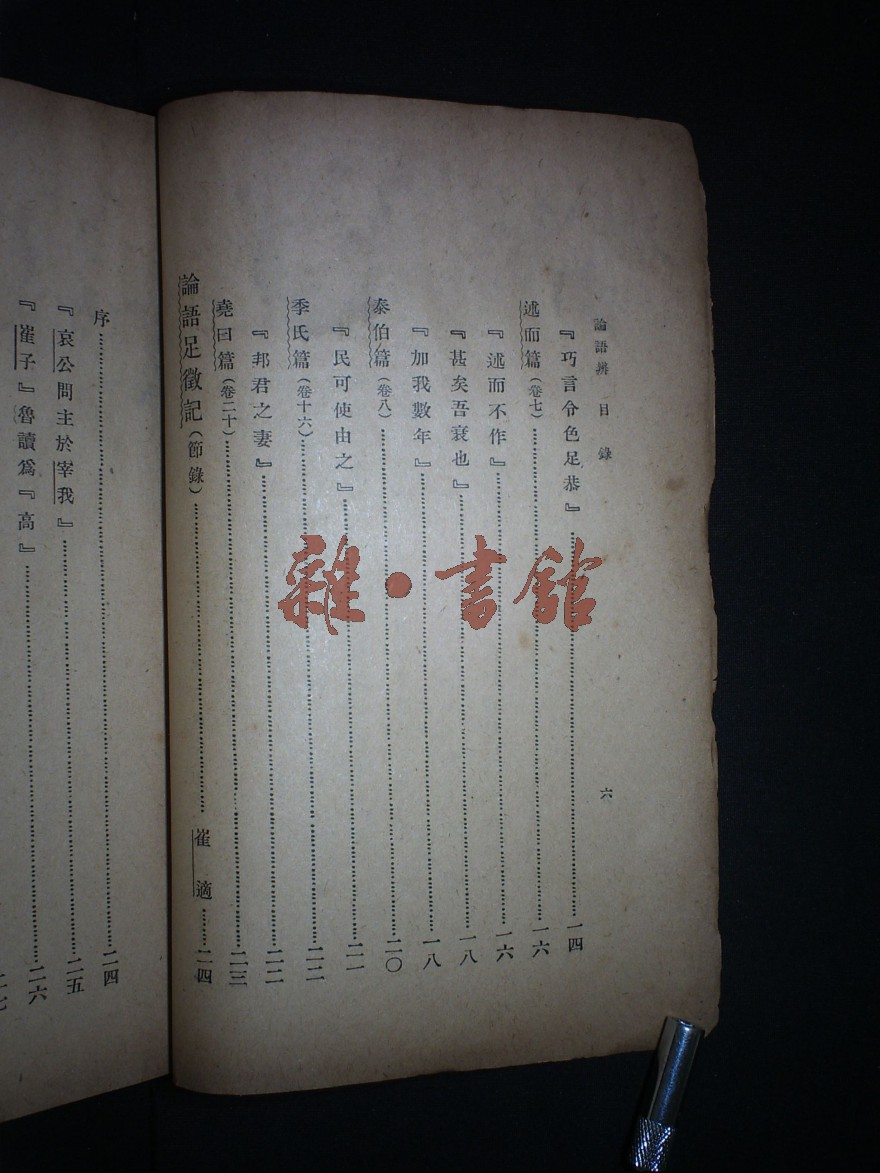 論語辨 目錄 六
『巧言令色足恭』……一四
述而篇（卷七）……一六
『述而不作』……一六
『甚矣吾衰也』……一八
『加我數年』……一八
泰伯篇（卷八）……二〇
『民可使由之』……二一
季氏篇（卷十六）……二二
『邦君之妻』……二二
堯曰篇（卷二十）……二三
論語足徵記（節錄）……崔適……二四
序……二四
『哀公問主於宰我』……二五
『崔子』魯讀爲『高』……二六
雜·書館